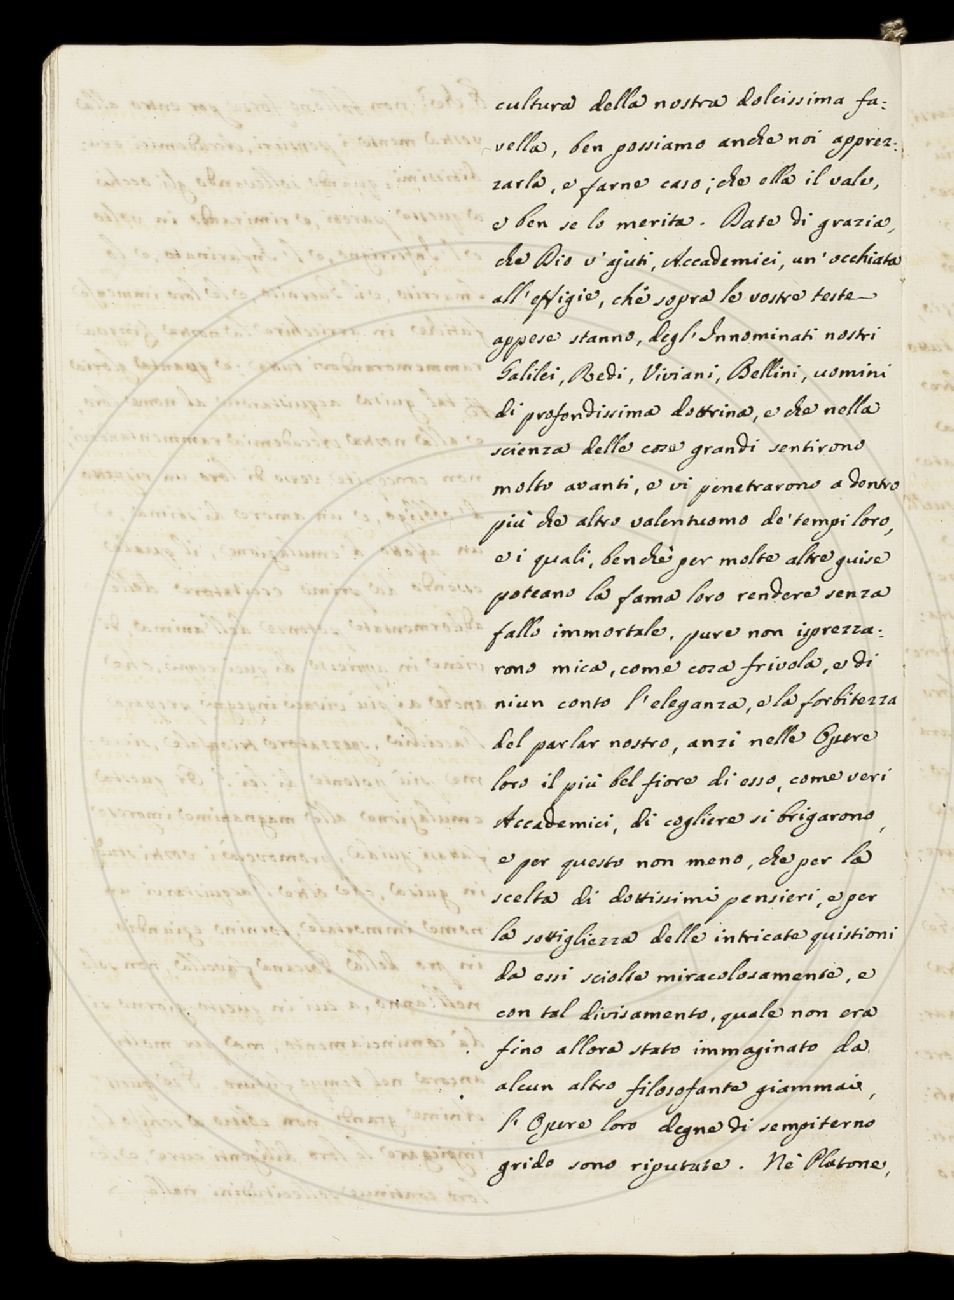 cultura della nostra dolcissima fa:
vella, ben possiamo anche noi apprez:
zarla, e farne caso; che ella il vale,
e ben se lo merita. Date di grazia,
che Dio v'ajuti, Accademici, un'occhiata
all'effigie, ché sopra le vostre teste
appese stanno, degl'Innominati nostri
Galilei, Redi, Viviani, Bellini, uomini
di profondissima dottrina, e che nella
scienza delle cose grandi sentirono
molto avanti, e vi penetrarono a dentro
più che altro valentuomo de' tempi loro,
e i quali, benchè per molte altre guise
poteano la fama loro rendere senza
fallo immortale, pure non isprezza:
rono mica, come cosa frivola, e di
niun conto l'eleganza, e la forbitezza
del parlar nostro, anzi nelle Opere
loro il più bel fiore di esso, come veri
Accademici, di cogliere si brigarono,
e per questo non meno, che per la
scelta di dottissimi pensieri, e per
la sottigliezza delle intricate quistioni
da essi sciolte miracolosamente, e
con tal divisamento, quale non era
fino allora stato immaginato da
alcun altro filosofante giammai,
l'Opere loro degne di sempiterno
grido sono riputate. Nè Platone,